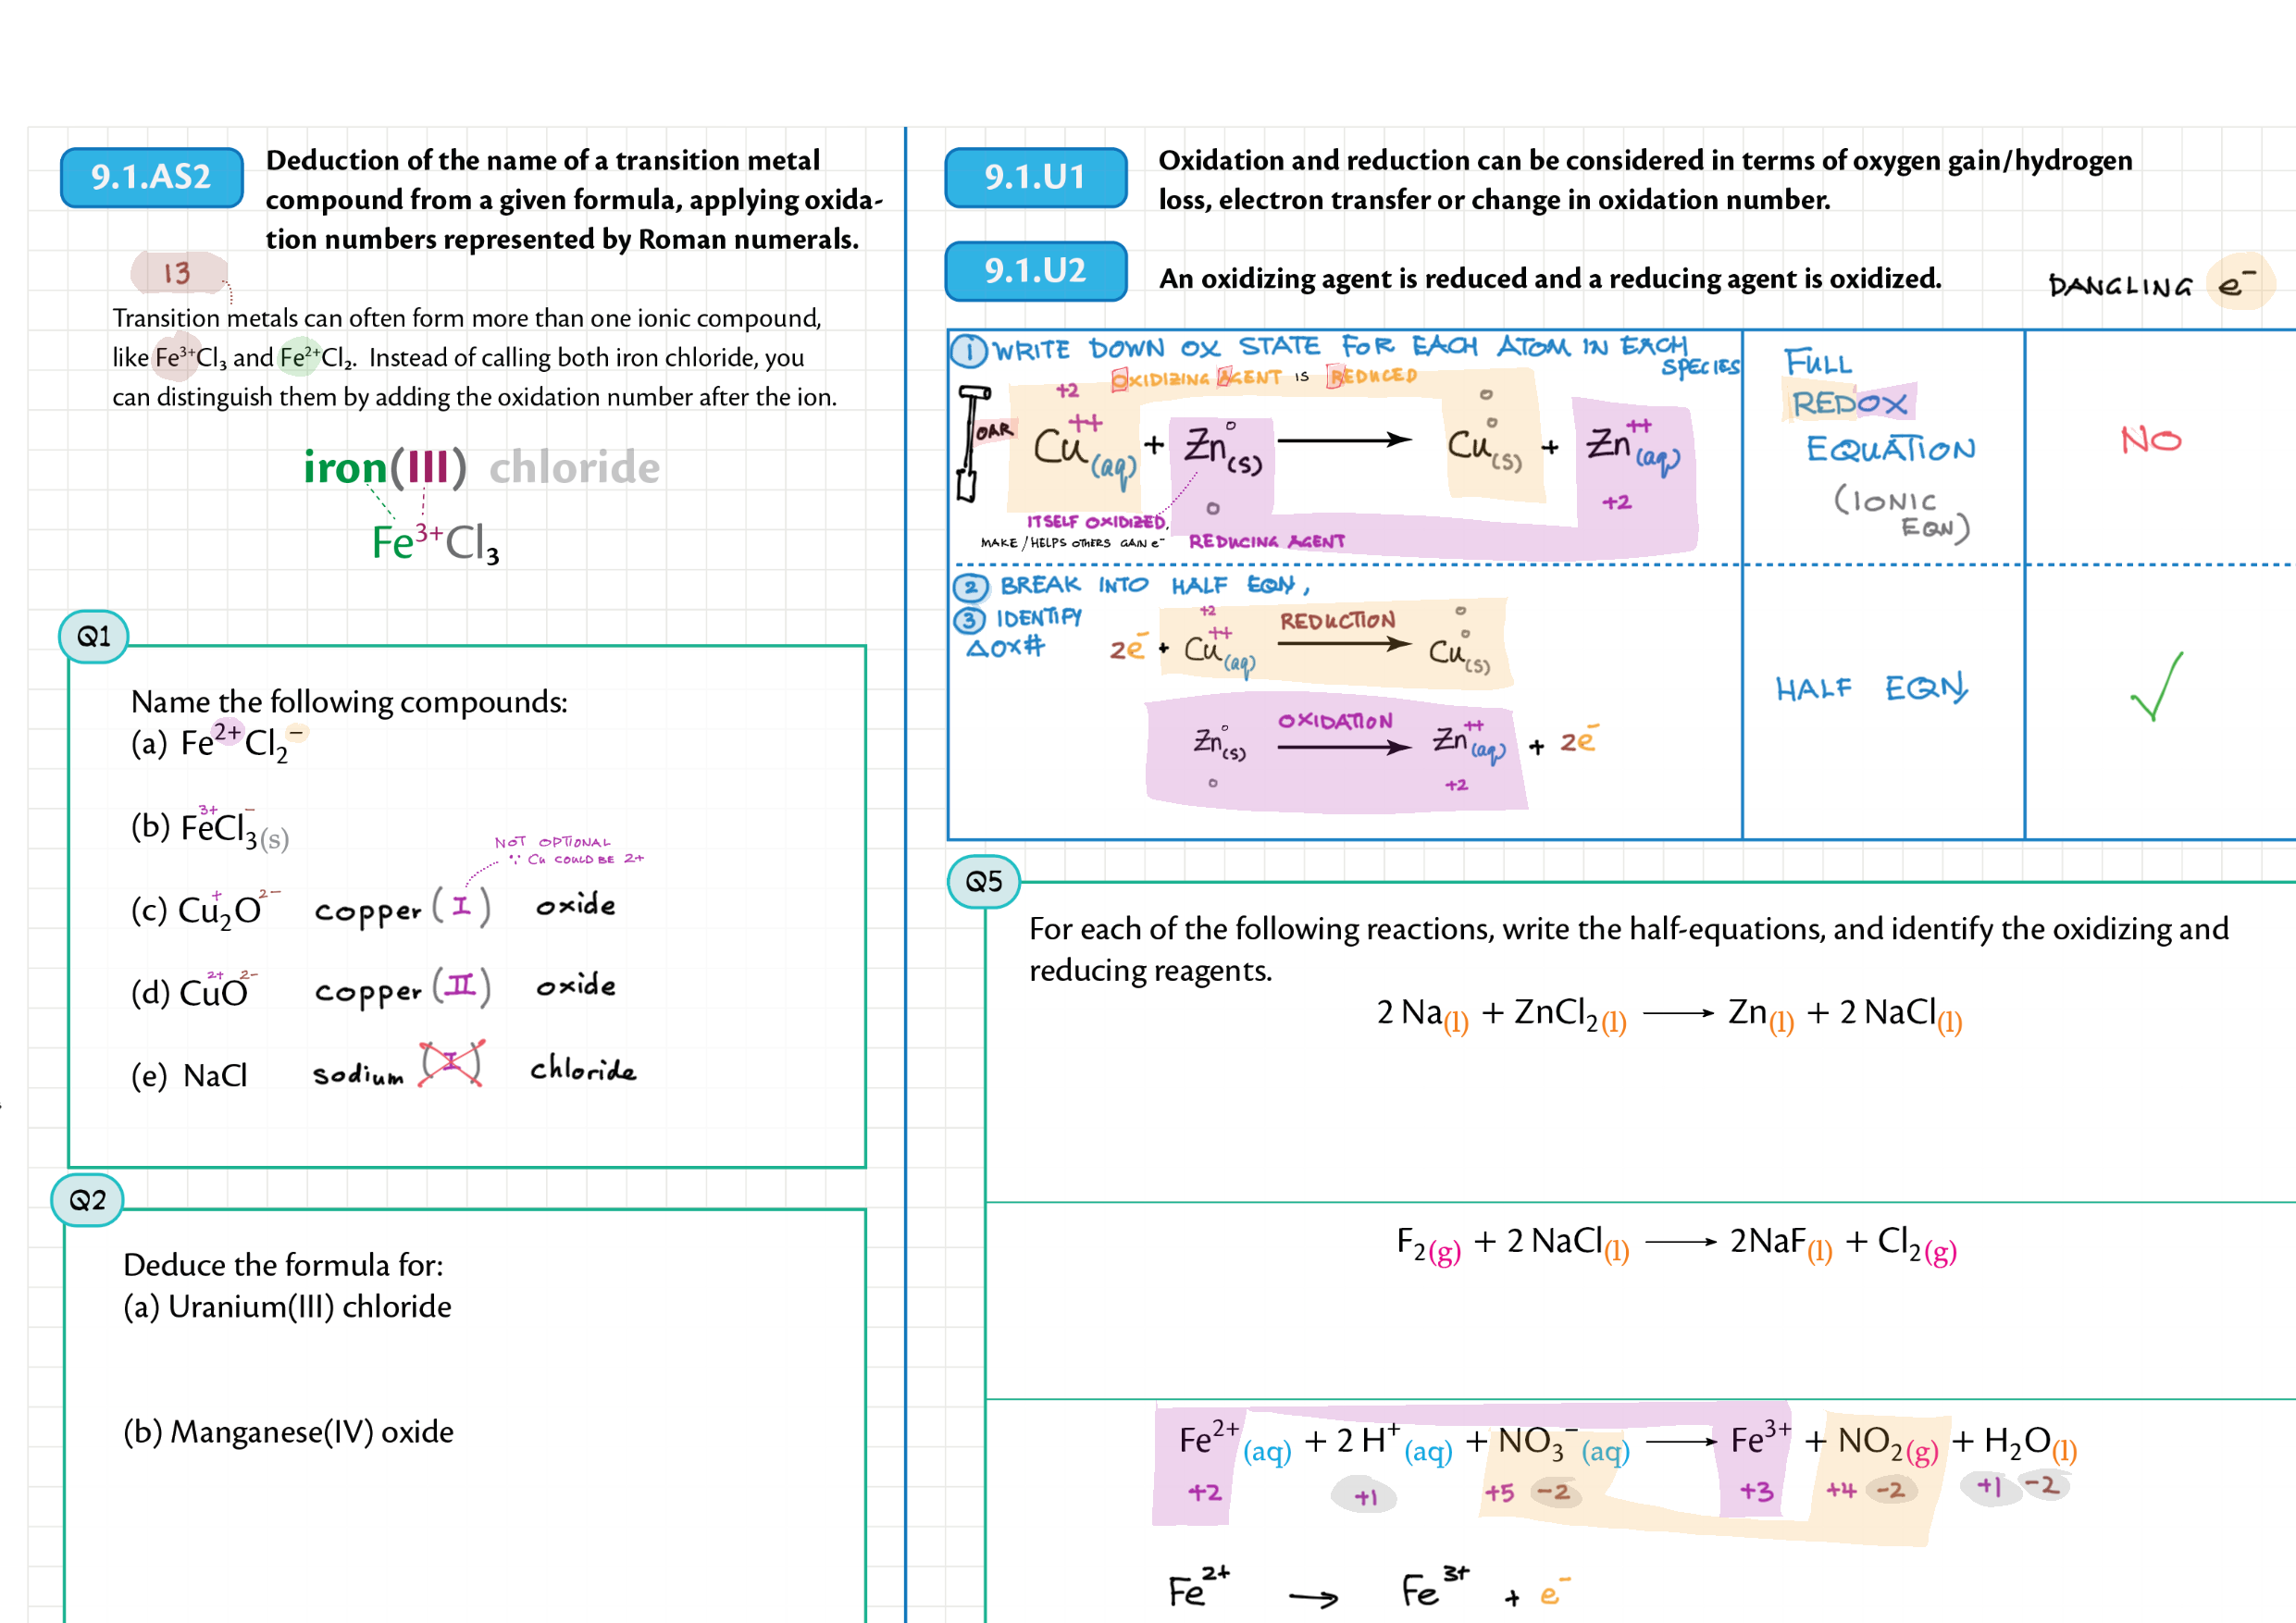 9.1.AS2
Deduction of the name of a transition metal
compound from a given formula, applying oxida-
tion numbers represented by Roman numerals.
13
Transition metals can often form more than one ionic compound,
like Fe³⁺Cl₃ and Fe²⁺Cl₂. Instead of calling both iron chloride, you
can distinguish them by adding the oxidation number after the ion.
iron(III) chloride
Fe³⁺Cl₃
Q1
Name the following compounds:
(a) Fe²⁺Cl₂⁻
(b) FeCl₃(s)
3+ −
NOT OPTIONAL
∵ Cu COULD BE 2+
(c) Cu₂O copper (I) oxide
+ 2−
(d) CuO copper (II) oxide
2+ 2−
(e) NaCl sodium (I) chloride
Q2
Deduce the formula for:
(a) Uranium(III) chloride
(b) Manganese(IV) oxide
9.1.U1
Oxidation and reduction can be considered in terms of oxygen gain/hydrogen
loss, electron transfer or change in oxidation number.
9.1.U2
An oxidizing agent is reduced and a reducing agent is oxidized.
DANGLING e⁻
1 WRITE DOWN OX STATE FOR EACH ATOM IN EACH
SPECIES
OXIDIZING AGENT IS REDUCED
+2 0
OAR
Cu⁺⁺(aq) + Zn⁰(s) ⟶ Cu⁰(s) + Zn⁺⁺(aq)
0 +2
ITSELF OXIDIZED,
MAKE/HELPS OTHERS GAIN e⁻ REDUCING AGENT
FULL
REDOX
EQUATION
(IONIC
EQN)
NO
2 BREAK INTO HALF EQN,
3 IDENTIFY
ΔOX#
+2 REDUCTION 0
2e⁻ + Cu⁺⁺(aq) ⟶ Cu⁰(s)
OXIDATION
Zn⁰(s) ⟶ Zn⁺⁺(aq) + 2e⁻
0 +2
HALF EQN
✓
Q5
For each of the following reactions, write the half-equations, and identify the oxidizing and
reducing reagents.
2 Na(l) + ZnCl₂(l) ⟶ Zn(l) + 2 NaCl(l)
F₂(g) + 2 NaCl(l) ⟶ 2NaF(l) + Cl₂(g)
Fe²⁺(aq) + 2 H⁺(aq) + NO₃⁻(aq) ⟶ Fe³⁺ + NO₂(g) + H₂O(l)
+2 +1 +5 -2 +3 +4 -2 +1 -2
Fe²⁺ → Fe³⁺ + e⁻